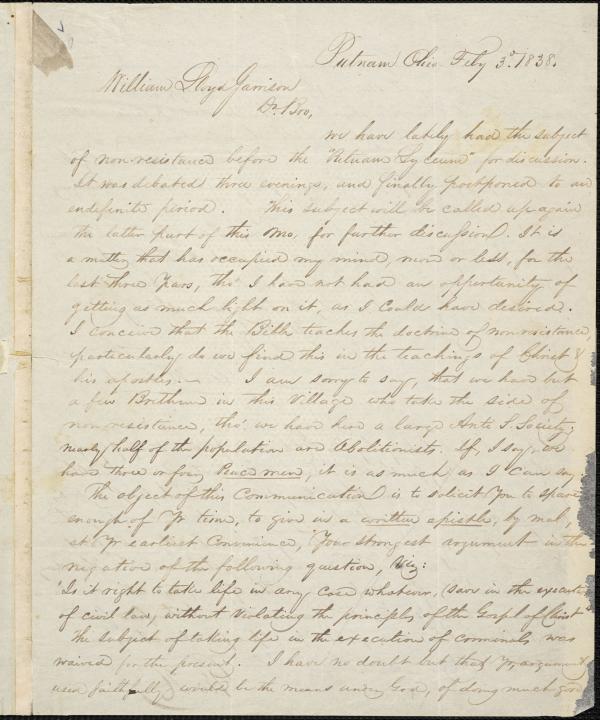 Putnam Ohio Feby 3d. 1838.
William Lloyd Garrison
Dr. Bro,
we have lately had the subject
of non-resistance before the "Putnam Lyceum" for discussion.
It was debated three evenings, and finally postponed to an
endefinite period. This subject will be called up again
the latter part of this Mo, for further discussion. It is
a matter that has occupied my mind, more or less, for the
last three Years, tho' I have not had an opportunity of
getting as much light on it, as I could have desired.
I conceive that the Bible teaches the doctrine of nonresistance,
particularly do we find this in the teachings of Christ &
his apostles. — I am sorry to say, that we have but
a few Brethren in this Village who take the side of
nonresistance, tho' we have here a large Anti S. Society;
nearly half of the population are Abolitionists. If, I say, we
have three or four Peace men, it is as much as I can say
The object of this Communication is to solicit You to spare
enough of Yr time, to give us a written epistle, by mail,
at Yr earliest Convenience, Your strongest argument in the
negative of the following question, Viz:
"Is it right to take life in any case whatever, save in the
of civil law, without violating the principles of the Gospel of Christ
The subject of taking life in the execution of criminals was
waived for the present. I have no doubt but that Yr argument
used faithfully would be the means under God, of doing much good